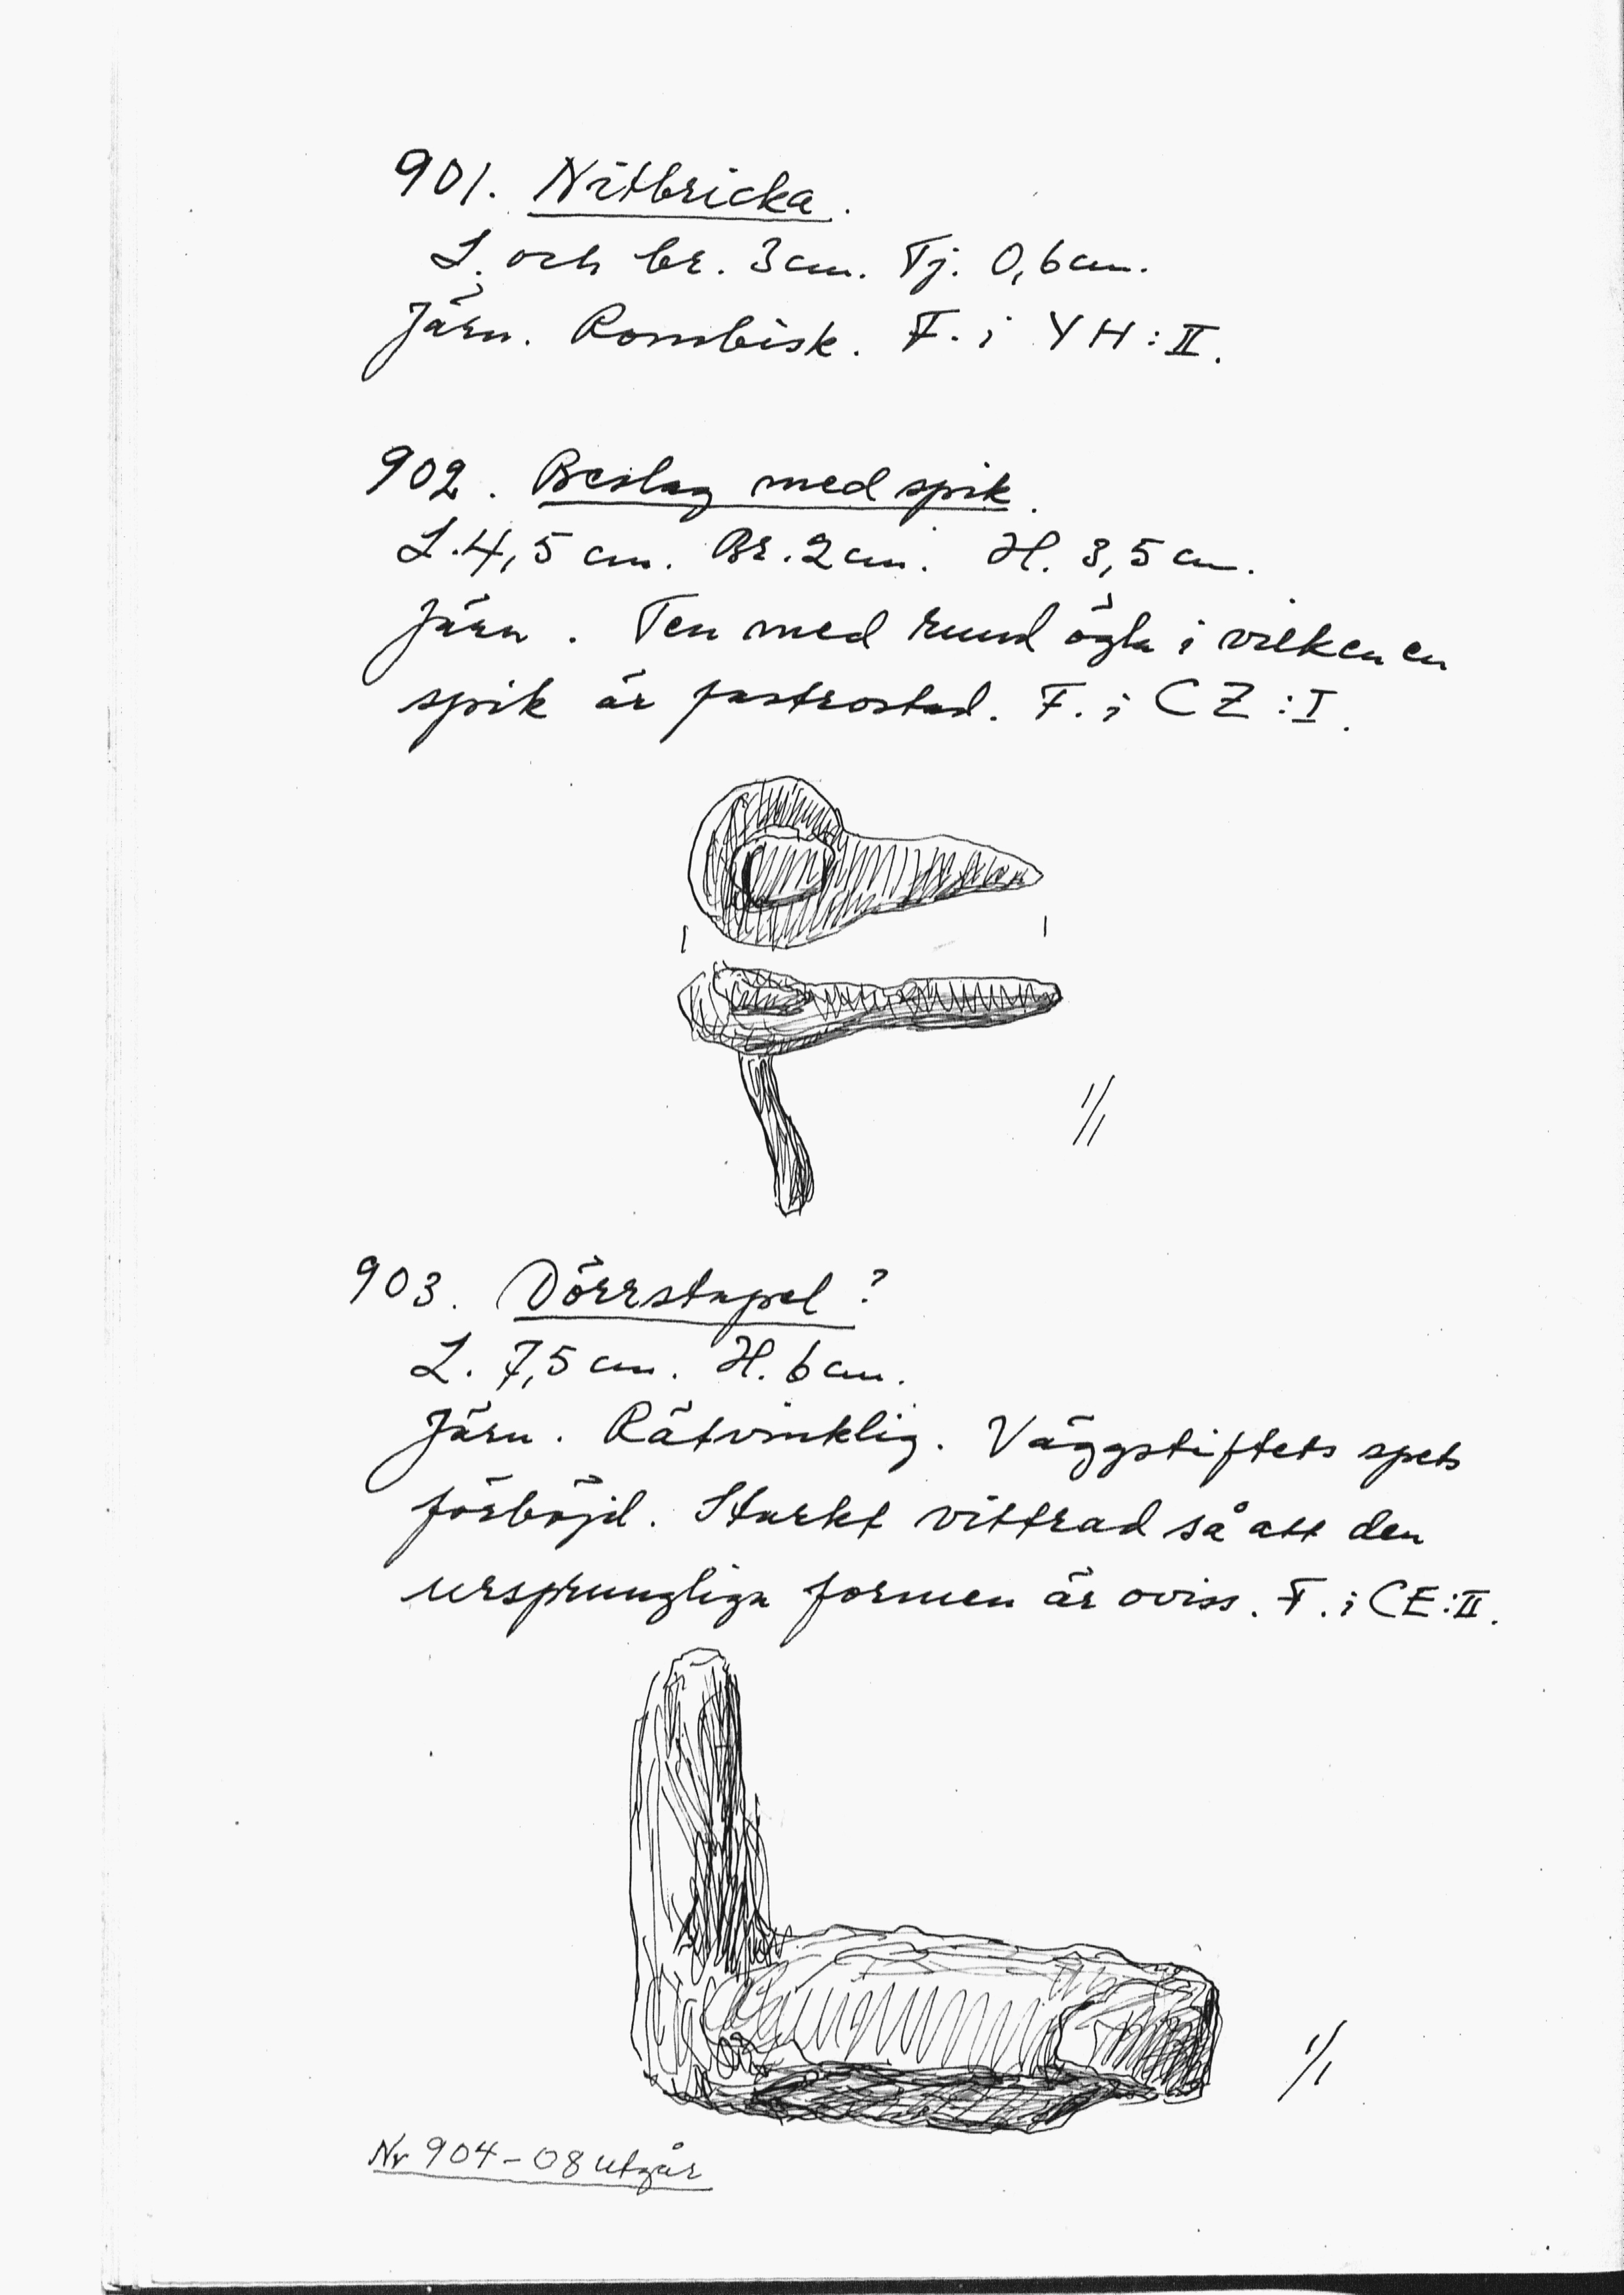 901. Nitbricka.
L. och br. 3 cm. Tj. 0,6 cm.
Järn. Rombisk. F. i YH:II.
902. Beslag med spik.
L. 4,5 cm. Br. 2 cm. H. 3,5 cm.
Järn. Ten med rund ögla i vilken en
spik är fastrostad. F. i CZ:I.
1/1
903. Dörrstapel?
L. 7,5 cm. H. 6 cm.
Järn. Rätvinklig. Väggstiftets spets
förböjd. Starkt vittrad så att den
ursprungliga formen är oviss. F. i CE:II.
1/1
Nr 904-08 utgår